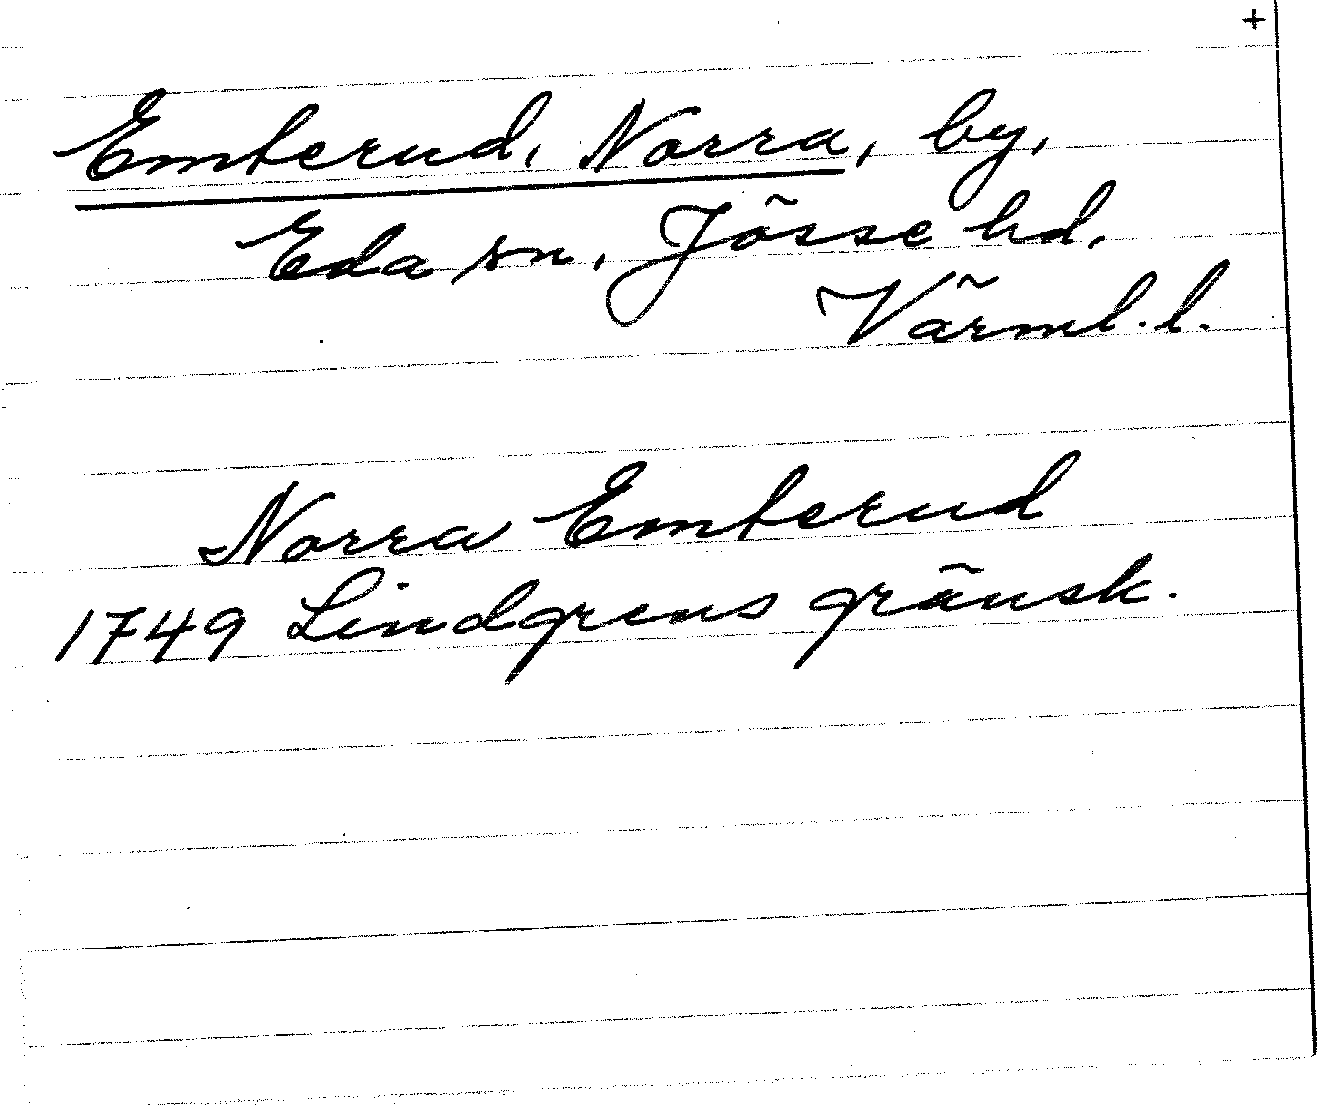 +
Emterud, Norra, by,
Eda sn, Jösse hd,
Värml. l.
Norra Emterud
1749 Lindgrens gränsk.